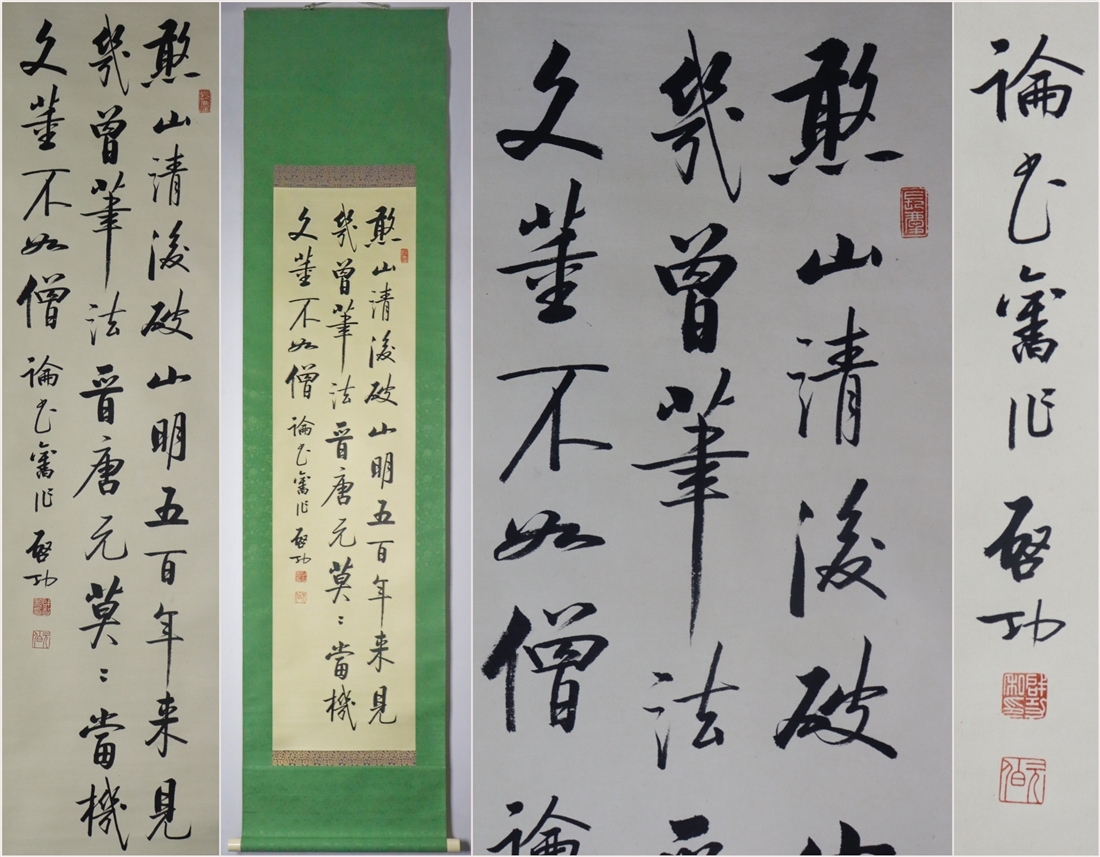 憨山清後破山明五百年来見
幾曾筆法晋唐元莫二當機
文董不如僧 論书舊作 啓功
憨山清後破山明五百年来見
幾曾筆法晋唐元莫二當機
文董不如僧 論书舊作 啓功
憨山清後破
幾曾筆法
文董不如僧 論
論书舊作 啓功